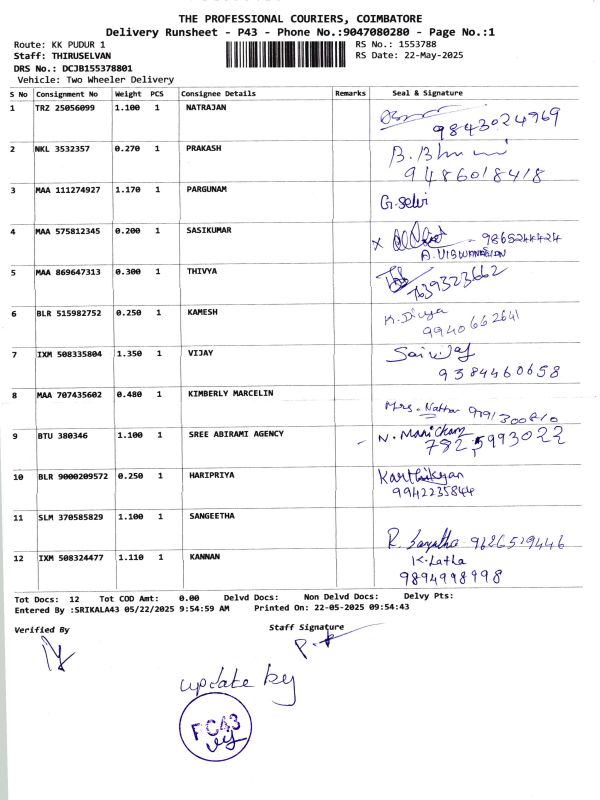 THE PROFESSIONAL COURIERS, COIMBATORE
Delivery Runsheet - P43 - Phone No.:9047080280 - Page No.:1
Route: KK PUDUR 1 RS No.: 1553788
Staff: THIRUSELVAN RS Date: 22-May-2025
DRS No.: DCJB155378801
Vehicle: Two Wheeler Delivery
S No Consignment No Weight PCS Consignee Details Remarks Seal & Signature
1 TRZ 25056099 1.100 1 NATRAJAN
9843024969
2 NKL 3532357 0.270 1 PRAKASH
9486018418
3 MAA 111274927 1.170 1 PARGUNAM
G. Selvi
4 MAA 575812345 0.200 1 SASIKUMAR
x - 9865244424
A. VISWANATHAN
5 MAA 869647313 0.300 1 THIVYA
7639323662
6 BLR 515982752 0.250 1 KAMESH K. Divya
9940662641
7 IXM 508335804 1.350 1 VIJAY
9384460658
8 MAA 707435602 0.480 1 KIMBERLY MARCELIN
Mrs.
9 BTU 380346 1.100 1 SREE ABIRAMI AGENCY N. Manickam
7825993022
10 BLR 9000209572 0.250 1 HARIPRIYA Karthikeyan
9942235844
11 SLM 370585829 1.100 1 SANGEETHA
R. 9626519446
12 IXM 508324477 1.110 1 KANNAN K. Latha
9894998998
Tot Docs: 12 Tot COD Amt: 0.00 Delvd Docs: Non Delvd Docs: Delvy Pts:
Entered By :SRIKALA43 05/22/2025 9:54:59 AM Printed On: 22-05-2025 09:54:43
Verified By Staff Signature
update by
PC43